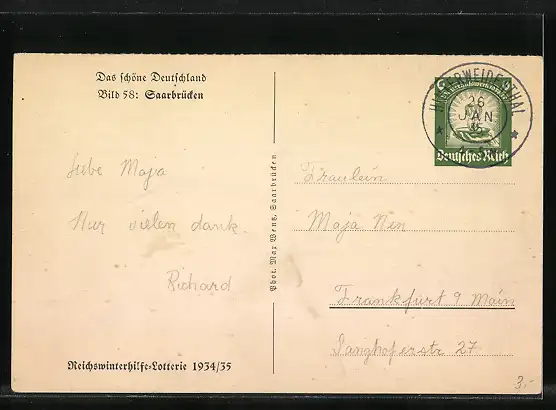 Das schöne Deutschland
Bild 58: Saarbrücken
HINTERWEIDENTHAL
26
JAN
35
Deutsches Reich
Liebe Maja
Nur vielen dank.
Richard
Phot. Max Wentz, Saarbrücken.
Fräulein
Maja Nen
Frankfurt 9 Main
Ganghoferstr 27
Reichswinterhilfe-Lotterie 1934/35
3.-